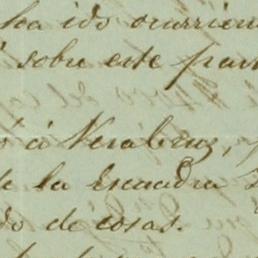 ha ido ocurrien
sobre este par
á Veracruz,
la Escuadra
do de cosas.